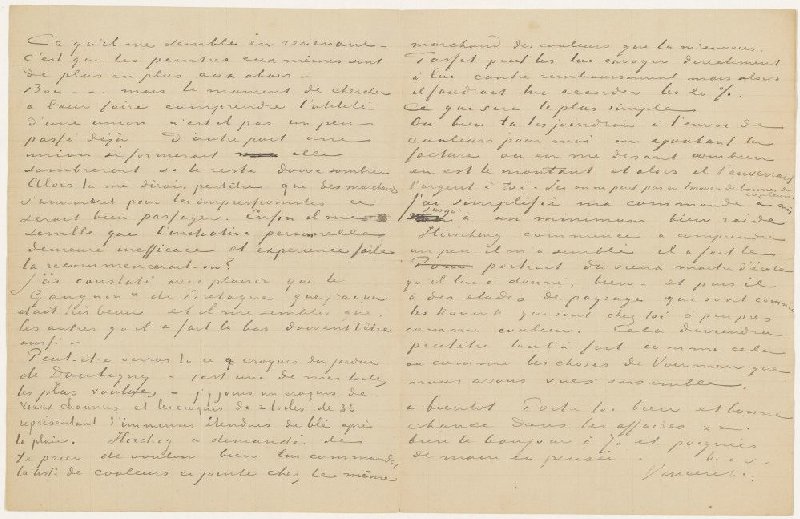 Ce qu'il me semble en revenant –
c'est que les peintres eux mêmes sont
de plus en plus aux abois –
Bon – – mais le moment de chercher
à leur faire comprendre l'utilité
d'une union n'est il pas un peu
passé déjà D'autre part une
union se formerait elle
sombrerait si le reste doive sombrer
Alors tu me dirais peutêtre que des marchands
s'uniraient pour les impressionistes ce
serait bien passager. Enfin il me
semble que l'initiative personnelle
demeure inefficace et expérience faite
la recommencerait-on?
J'ai constaté avec plaisir que le
Gauguin de Bretagne que j'ai vu
était très beau et il me semble que
les autres qu'il a fait là bas doivent l'être
aussi. –
Peut-être verras tu ce croquis du jardin
de Daubigny – c'est une de mes toiles
les plus voulues – j'y joins un croquis de
vieux chaumes et les croquis de 2 toiles de 30
représentant d'immenses étendues de blé après
la pluie. Hirschig a demandé de
te prier de vouloir bien lui commander
la liste de couleurs ci jointe chez le même
marchand de couleurs que tu m'envoies.
Tasset peut les lui envoyer directement
à lui contre remboursement mais alors
il faudrait lui accorder les 20 %.
Ce que sera le plus simple
Ou bien tu les joindrais à l'envoi de
couleurs pour moi en ajoutant la
facture ou en me disant combien
en est le montant et alors il t'enverrait
l'argent à toi.
J'ai simplifié ma commande à moi
à un minimum bien raide
Hirschig commence à comprendre
un peu il m'a semblé il a fait le
portrait du vieux maitre d'école
qu'il lui a donné, bien – et puis il
a des études de paysage qui sont comme
les Koning qui sont chez toi à peu près
comme couleur. Cela deviendra
peutêtre tout à fait comme cela
ou comme les choses de Voerman que
nous avons vues ensemble.
à bientôt Porte toi bien et bonne
chance dans les affaires &c.
bien le bonjour à Jo et poignées
de main en pensée. b. à t.
Vincent.